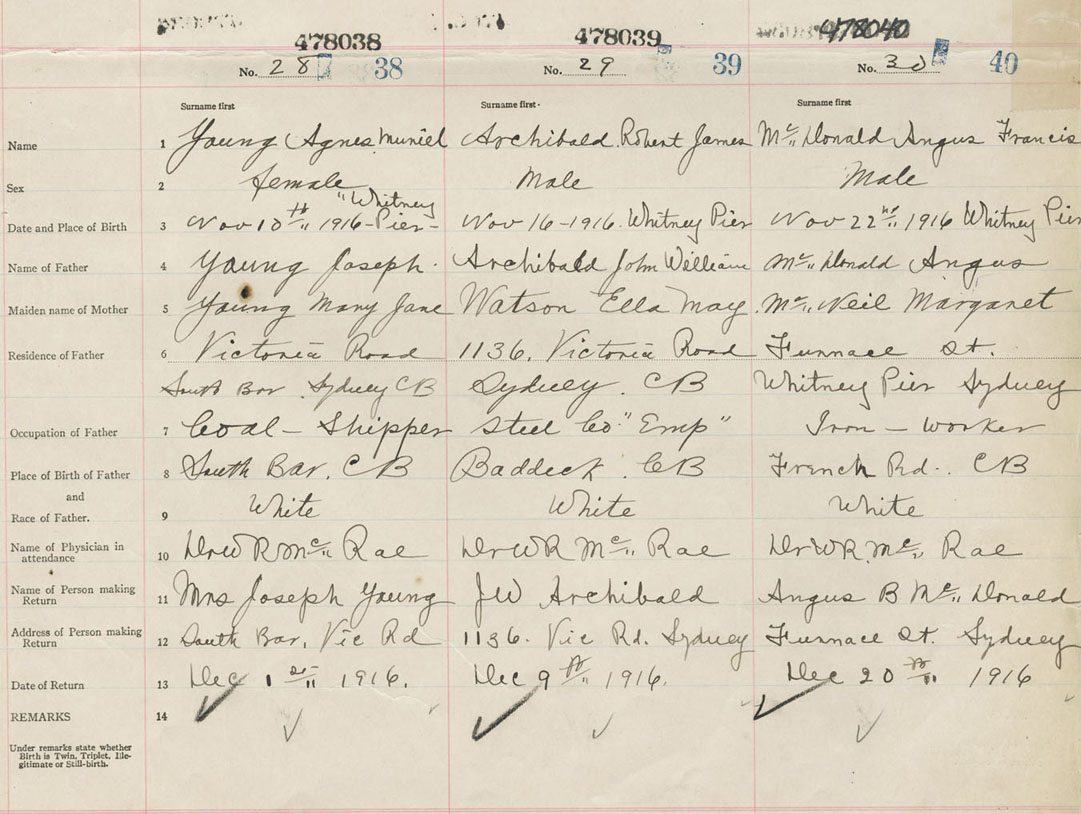 478038 478039 478040
No. 28 38 No. 29 39 No. 30 40
Surname first Surname first. Surname first
Name 1 Young Agnes Muriel Archibald Robert James Mc" Donald Angus Francis
Sex 2 female Male Male
"Whitney
Date and Place of Birth 3 Nov 10th" 1916 - Pier - Nov 16 - 1916. Whitney Pier Nov 22nd" 1916 Whitney Pier
Name of Father 4 Young Joseph. Archibald John William Mc" Donald Angus
Maiden name of Mother 5 Young Mary Jane Watson Ella May Mc" Neil Margaret
Residence of Father 6 Victoria Road 1136, Victoria Road Furnace St.
South Bar. Sydney CB Sydney. CB Whitney Pier Sydney
Occupation of Father 7 Coal - Shipper Steel Co "Emp" Iron - worker
Place of Birth of Father 8 South Bar. CB Baddeck. CB French Rd. CB
and
Race of Father. 9 White White White
Name of Physician in attendance 10 Dr WR Mc" Rae Dr WR Mc" Rae Dr WR. Mc" Rae
Name of Person making Return 11 Mrs Joseph Young JW Archibald Angus B Mc" Donald
Address of Person making Return 12 South Bar, Vic Rd 1136. Vic Rd. Sydney Furnace St. Sydney
Date of Return 13 Dec 1st" 1916. Dec 9th" 1916. Dec 20th" 1916
REMARKS 14
Under remarks state whether
Birth is Twin, Triplet, Ille-
gitimate or Still-birth.